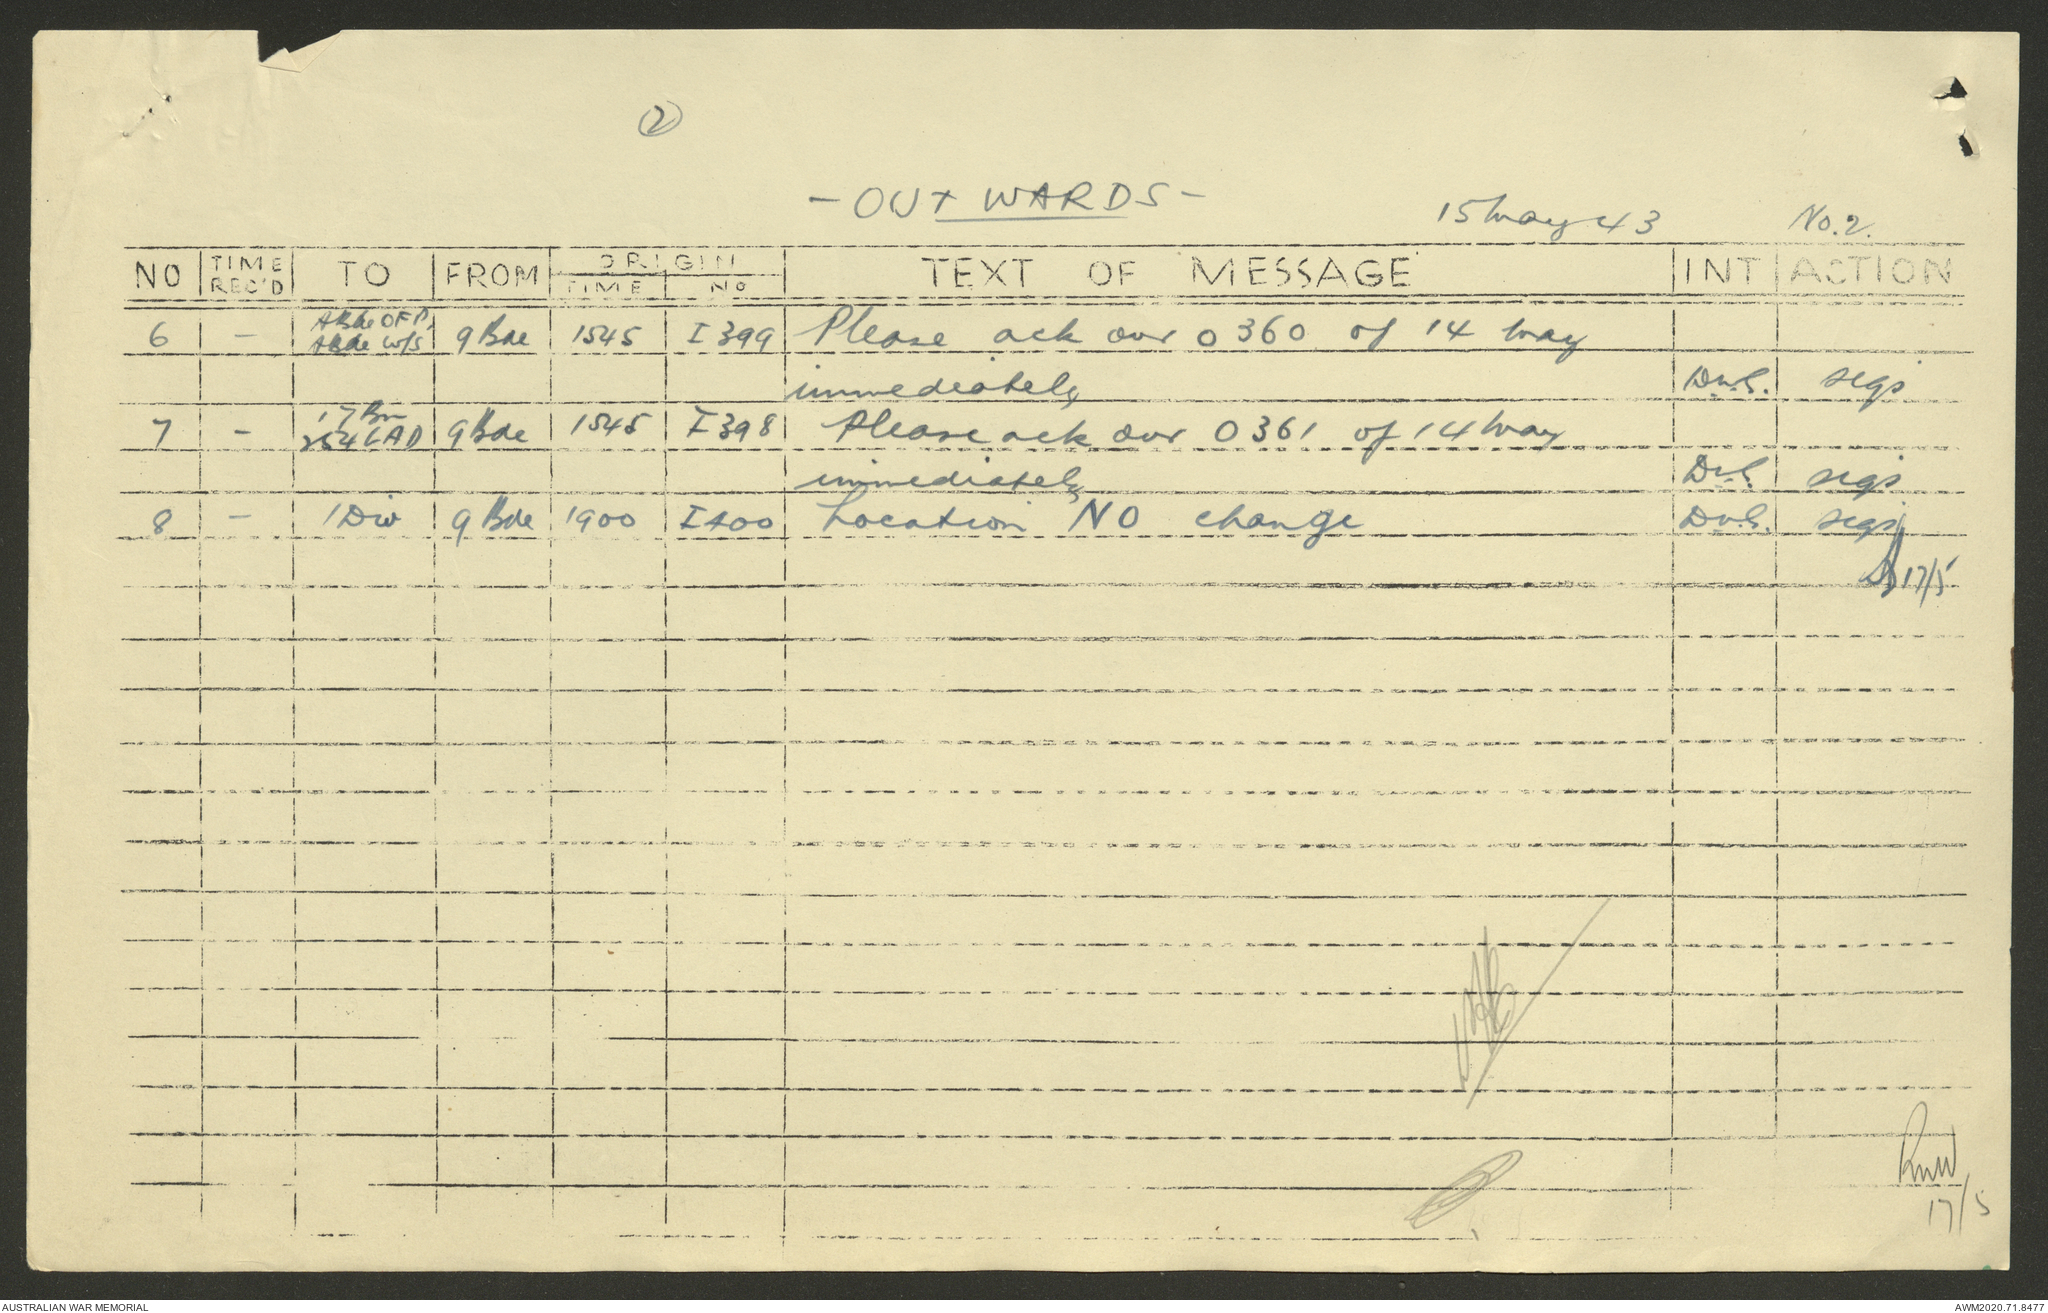 ②
- OUTWARDS -
15 May 43 No. 2.
NO TIME REC'D TO FROM ORIGIN TIME No TEXT OF MESSAGE INT ACTION
A Bde OFP,
6 - A Bde W/S 9 Bde 1545 I 399 Please ack our O 360 of 14 May
immediately D.v.S. sigs
17 Bn
7 - 254 LAD 9 Bde 1545 I 398 Please ack our O 361 of 14 May
immediately D.v.S. sigs
8 - 1 Div 9 Bde 1900 I 400 Location NO change D.v.S. sigs
17/5
17/5
AUSTRALIAN WAR MEMORIAL AWM2020.71.8477